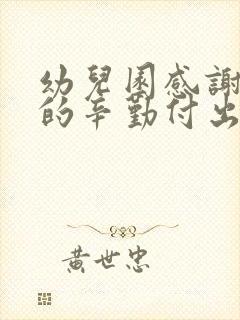 幼兒園感謝
的辛勤付出
黃世忠